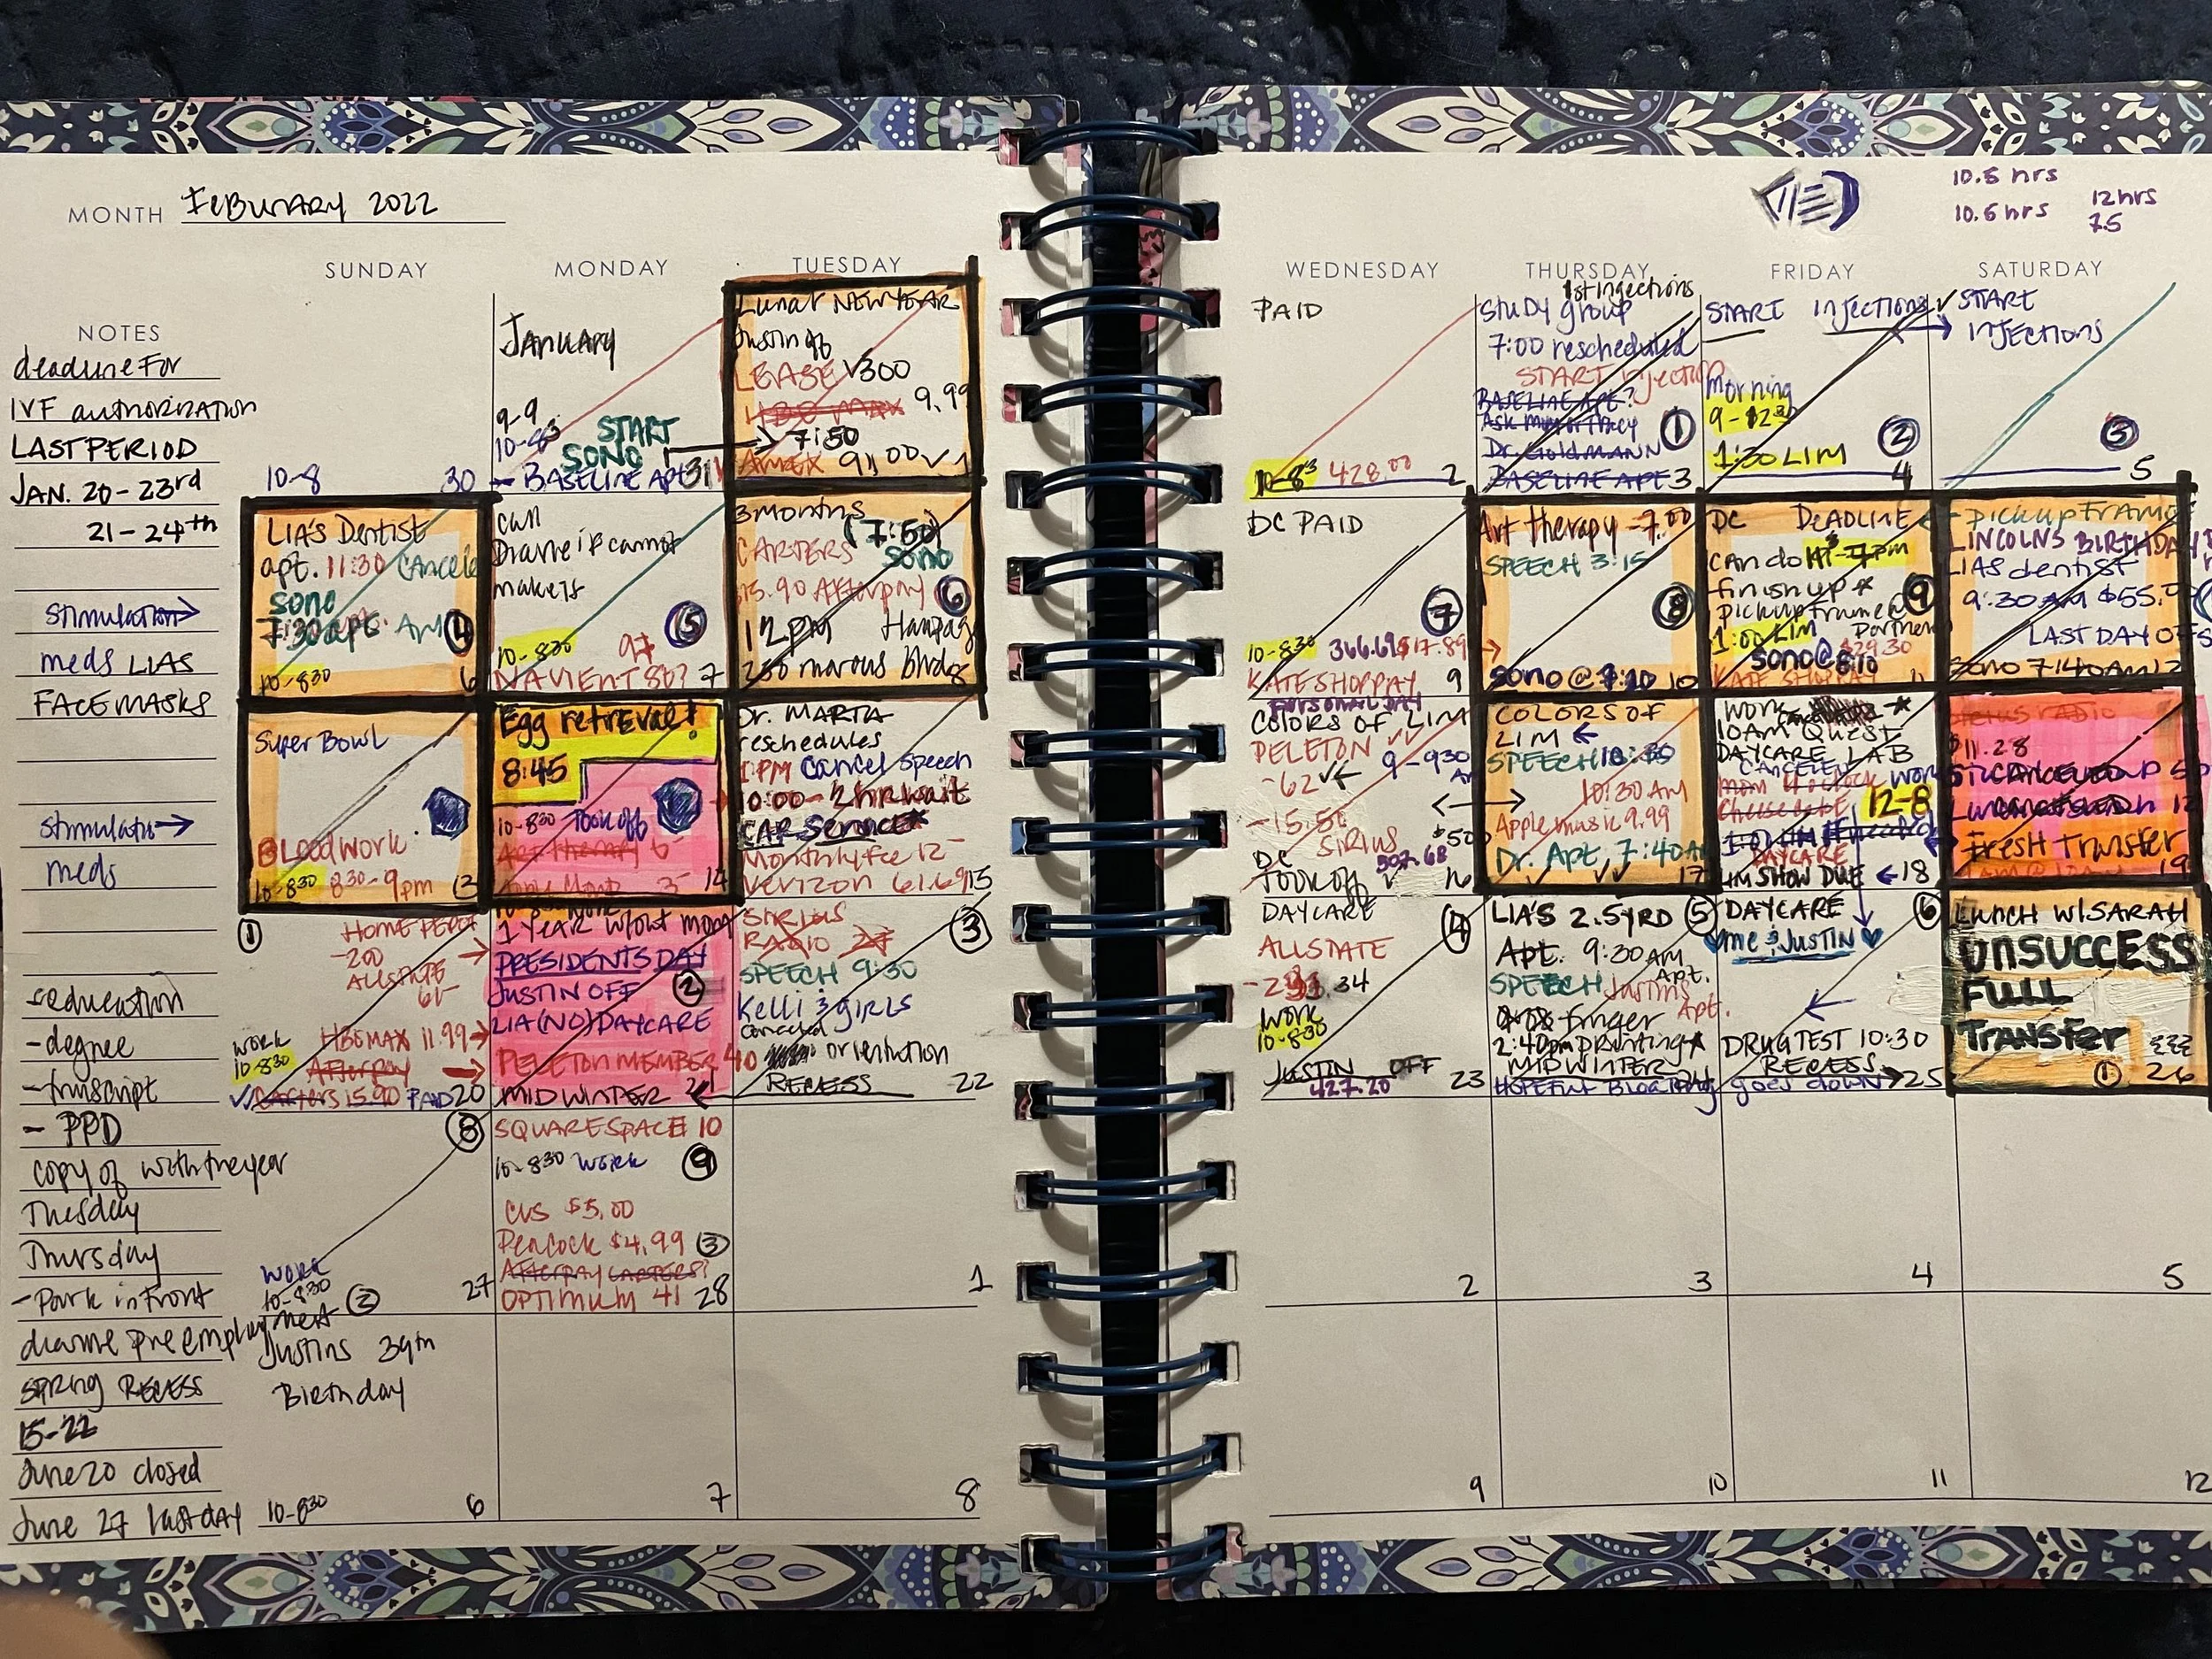 MONTH FEBURARY 2022
10.5 hrs
10.5 hrs
12hrs
7.5
SUNDAY MONDAY TUESDAY WEDNESDAY THURSDAY FRIDAY SATURDAY
NOTES
deadline for
IVF authorization
LAST PERIOD
JAN. 20-23rd
21-24th
stimulation
meds LIAS
FACEMASKS
stimulatio
meds
- education
- degree
- transcript
- PPD
copy of with the year
Tuesday
Thursday
- Park in Front
SPRING RECESS
15-22
June 20 closed
June 27 last day
10-8 30
January
9-9
START
SONO
- BASELINE APT 31
Lunar NEW YEAR
Justin off
LEASE √300
HBO MAX 9.99
7:50
AMEX 911.00 √ 1
PAID
10-8 428.00 2
1st injections
Study group
7:00 rescheduled
START injection
BASELINE APT?
Dr. Goldmann
BASELINE APT 3
1
START injections
morning
1:30 LIM
2
4
START
INJECTIONS
5
LIA'S Dentist
apt. 11:30 cancele
sono
7:30 apt. AM 4
10-830 6
call
Dianne if cannot
make it
5
10-830
NAVIENT 86? 7
3 months
(7:50)
CARTERS sono
15.90 Afterpay 6
12 PM
8
DC PAID
7
10-830 366.69 $17.89
KATE SHOP PAY 9
Art therapy - 7:00
SPEECH 3:15
8
SONO @ 7:20 10
DC DEADLINE
can do
finish up
pick up frame
9
1:00 LIM
$29.30
SONO @ 8:10
KATE SHOP PAY 11
PICK UP FRAME
LINCOLN'S BIRTHDAY
LIAS dentist
9:30 AM $55.0
LAST DAY OF
SONO 7:40AM 12
Super Bowl
Bloodwork
10-830 830-9pm 13
Egg retreval!
8:45
10-830 Took off
Art therapy
14
Dr. MARTA
reschedules
1 PM cancel speech
10:00 - 2hr wait
CAR SERVICE
Monthly fee 12-
Verizon 61.69 15
PERSONAL DAY
COLORS OF LIM
PELETON
-62 9-930
-15.50
SIRIUS $50
DC 507.68
Took off 16
COLORS OF
LIM
SPEECH 10:30
10:30 AM
Apple music 9.99
Dr. Apt. 7:40AM
17
WORK
10AM Quest
DAYCARE LAB
CANCELED
WORK
12-8
DAYCARE
LIM SHOW DUE 18
SIRIUS RADIO
$11.28
Fresh Transfer
19
1
HOME DEPOT
-200
ALLSTATE
61-
WORK
10-830
HBOMAX 11.99
Afterpay
Carters 15.90 PAID 20
1 year w/out mom
PRESIDENTS DAY
JUSTIN OFF 2
LIA (NO) DAYCARE
PELETON MEMBER 40
MIDWINTER 21
SIRIUS
RADIO
3
SPEECH 9:30
Kelli & girls
canceled
orientation
RECESS 22
DAYCARE
4
ALLSTATE
WORK
10-830
JUSTIN OFF
427.20 23
LIA'S 2.5YRD 5
Apt. 9:30 AM
SPEECH Justins Apt.
finger
2:40pm printing
MIDWINTER 24
DAYCARE 6
me & JUSTIN
DRUG TEST 10:30
RECESS
goes down 25
LUNCH W/ SARAH
UNSUCCESS
FULL
TRANSFER
1
26
8
WORK
10-830
2
27
SQUARESPACE 10
10-830 WORK 9
CVS $5.00
Peacock $4.99 3
Afterpay CARTERS?
OPTIMUM 41 28
1
2
3
4
5
Justins 39th
Birthday
10-830 6
7
8
9
10
11
12